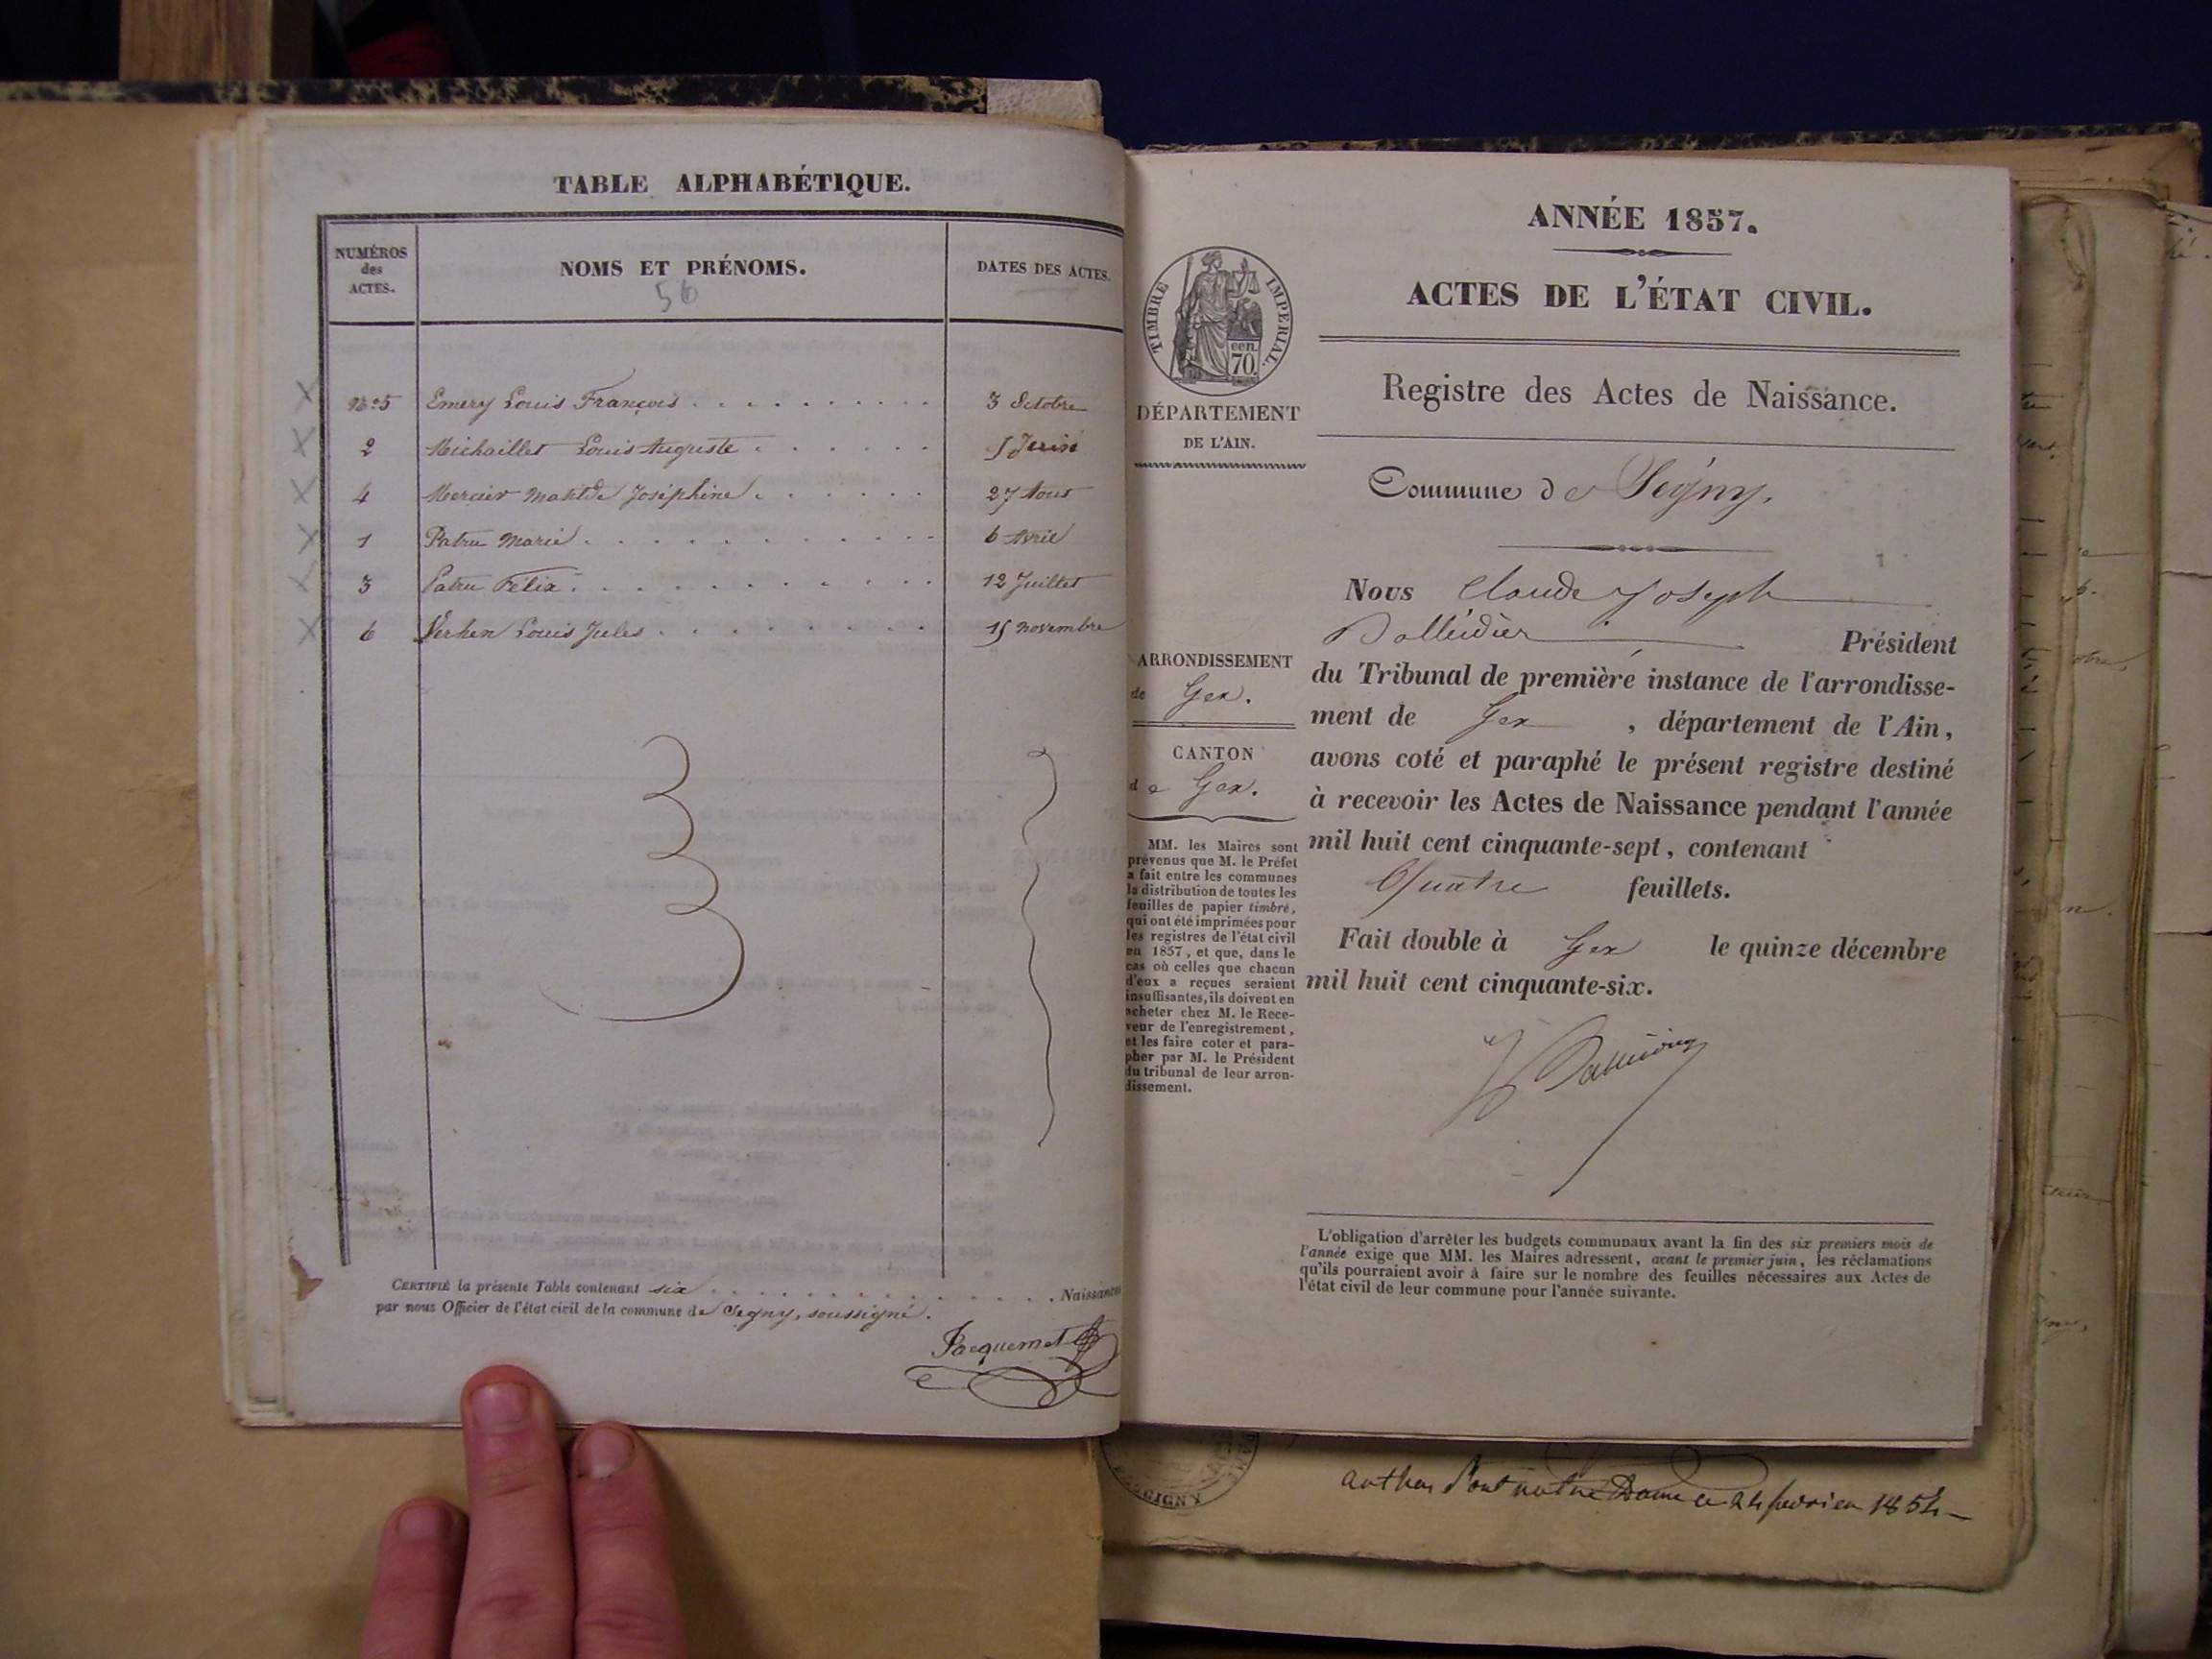 TABLE ALPHABÉTIQUE.
NUMÉROS
des
ACTES.
NOMS ET PRÉNOMS.
56
DATES DES ACTES.
N°5 Emery Louis François 3 Octobre
2 Michaillet Louis Auguste 5 Juin
4 Mercier Matilde Joséphine 27 Aout
1 Patru Marie 6 Avril
3 Patru Félix 12 Juillet
6 Verhen Louis Jules 15 novembre
CERTIFIÉ la présente Table contenant six Naissances
par nous Officier de l'état civil de la commune de Segny, soussigné.
Jacquemet
ANNÉE 1857.
ACTES DE L'ÉTAT CIVIL.
TIMBRE IMPERIAL.
cen.
70.
DÉPARTEMENT
DE L'AIN.
Registre des Actes de Naissance.
Commune de Ségny.
Nous Claude Joseph
Président
ARRONDISSEMENT
de Gex.
CANTON
de Gex.
du Tribunal de première instance de l'arrondisse-
ment de Gex, département de l'Ain,
avons coté et paraphé le présent registre destiné
à recevoir les Actes de Naissance pendant l'année
mil huit cent cinquante-sept, contenant
Quatre feuillets.
Fait double à Gex le quinze décembre
mil huit cent cinquante-six.
MM. les Maires sont
prévenus que M. le Préfet
a fait entre les communes
la distribution de toutes les
feuilles de papier timbré,
qui ont été imprimées pour
les registres de l'état civil
en 1857, et que, dans le
cas où celles que chacun
d'eux a reçues seraient
insuffisantes, ils doivent en
acheter chez M. le Rece-
veur de l'enregistrement,
et les faire coter et para-
pher par M. le Président
du tribunal de leur arron-
dissement.
L'obligation d'arrêter les budgets communaux avant la fin des six premiers mois de
l'année exige que MM. les Maires adressent, avant le premier juin, les réclamations
qu'ils pourraient avoir à faire sur le nombre des feuilles nécessaires aux Actes de
l'état civil de leur commune pour l'année suivante.
1854